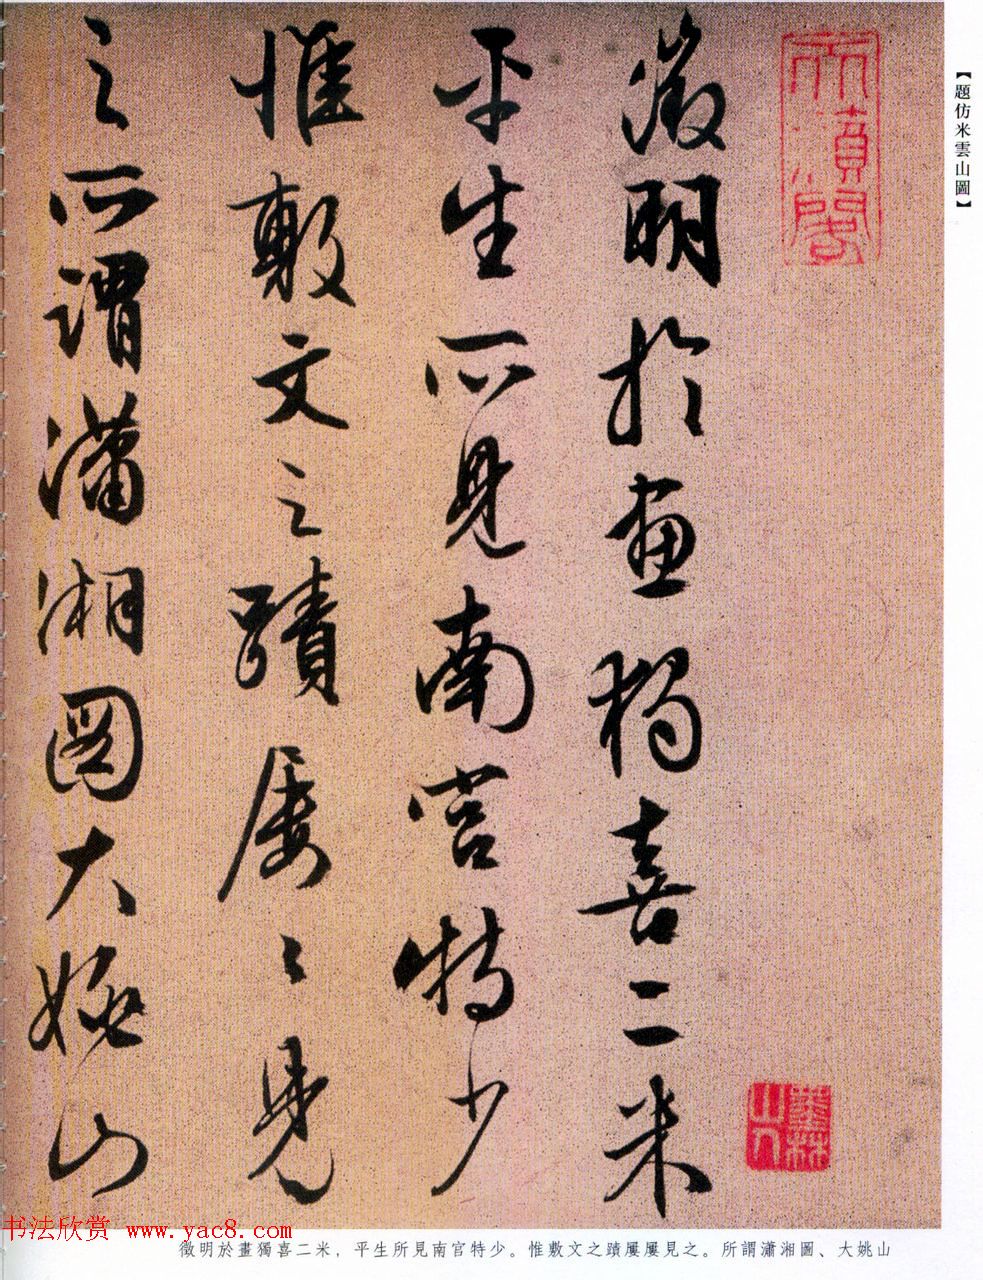 【題仿米雲山圖】
墨林
山人
徵明於畫獨喜二米
平生所見南宮特少
惟敷文之蹟屢〻見
之所謂瀟湘圖大姚山
书法欣赏 www.yac8.com
徵明於畫獨喜二米，平生所見南官特少。惟敷文之蹟屢屢見之。所謂瀟湘圖、大姚山